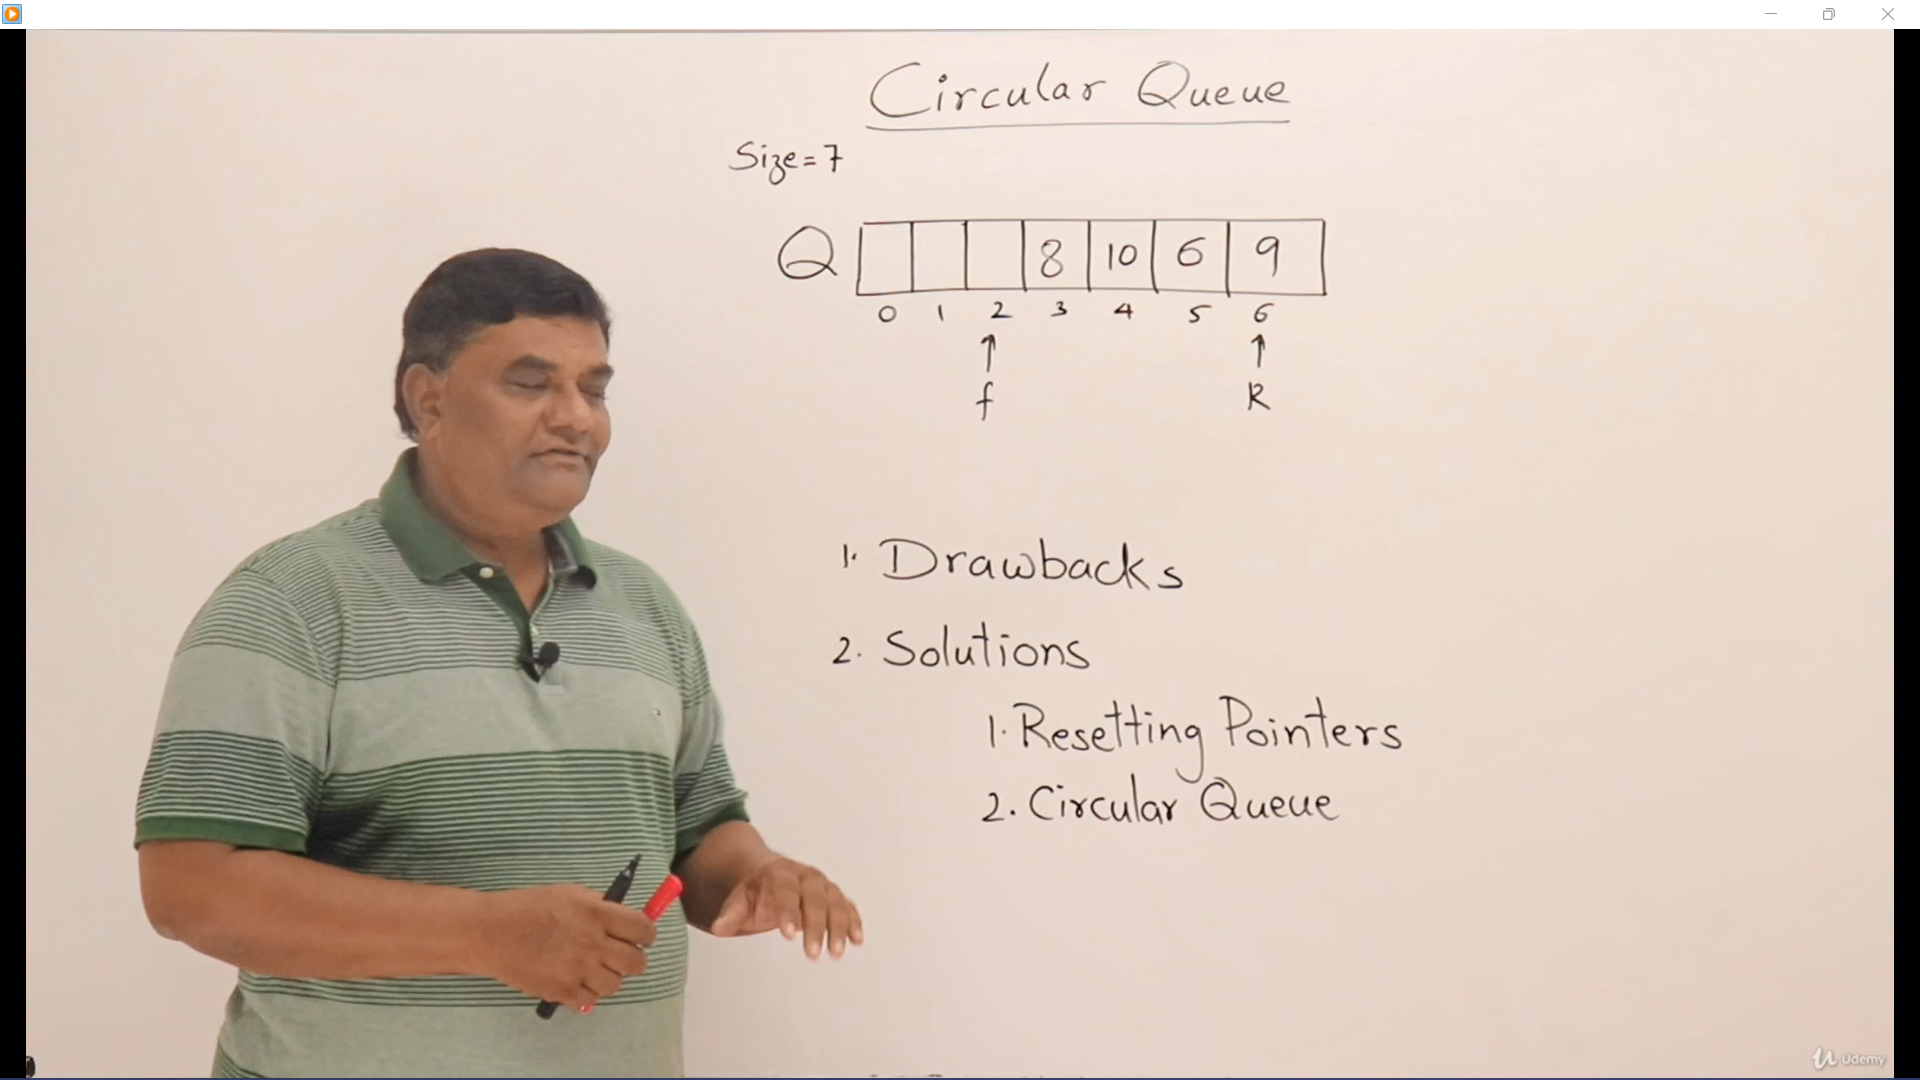 Circular Queue
Size=7
Q 8 10 6 9
0 1 2 3 4 5 6
f R
1. Drawbacks
2. Solutions
1. Resetting Pointers
2. Circular Queue
Udemy